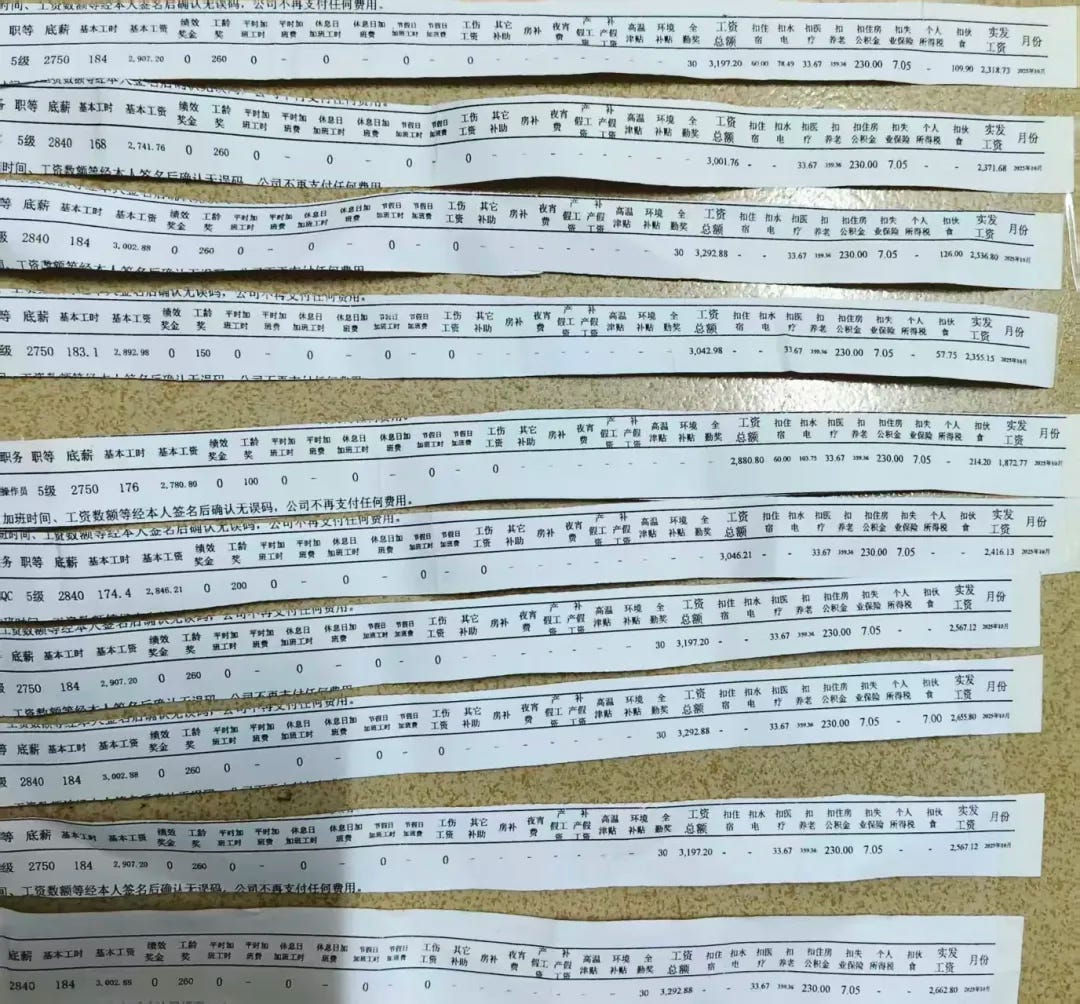 时间、工资数额等经本人签名后确认无误码，公司不再支付任何费用。
职等 底薪 基本工时 基本工资 绩效奖金 工龄奖 平时加班工时 平时加班费 休息日加班工时 休息日加班费 节假日加班工时 节假日加班费 工伤工资 其它补助 房补 夜宵费 产假工资 补产假工资 高温津贴 环境补贴 全勤奖 工资总额 扣住宿 扣水电 扣医疗 扣养老 扣住房公积金 扣失业保险 个人所得税 扣伙食 实发工资 月份
5级 2750 184 2,907.20 0 260 0 - 0 - 0 - 0 - - - - - - - 30 3,197.20 60.00 78.49 33.67 359.36 230.00 7.05 - 109.90 2,318.73 2025年10月
公司不再支付任何费用。
职等 底薪 基本工时 基本工资 绩效奖金 工龄奖 平时加班工时 平时加班费 休息日加班工时 休息日加班费 节假日加班工时 节假日加班费 工伤工资 其它补助 房补 夜宵费 产假工资 补产假工资 高温津贴 环境补贴 全勤奖 工资总额 扣住宿 扣水电 扣医疗 扣养老 扣住房公积金 扣失业保险 个人所得税 扣伙食 实发工资 月份
5级 2840 168 2,741.76 0 260 0 - 0 - 0 - 0 - - - - - - - 3,001.76 - - 33.67 359.36 230.00 7.05 - - 2,371.68 2025年10月
时间、工资数额等经本人签名后确认无误码，公司不再支付任何费用。
等 底薪 基本工时 基本工资 绩效奖金 工龄奖 平时加班工时 平时加班费 休息日加班工时 休息日加班费 节假日加班工时 节假日加班费 工伤工资 其它补助 房补 夜宵费 产假工资 补产假工资 高温津贴 环境补贴 全勤奖 工资总额 扣住宿 扣水电 扣医疗 扣养老 扣住房公积金 扣失业保险 个人所得税 扣伙食 实发工资 月份
级 2840 184 3,002.88 0 260 0 - 0 - 0 - 0 - - - - - - - 30 3,292.88 - - 33.67 359.36 230.00 7.05 - 126.00 2,536.80 2025年10月
工资数额等经本人签名后确认无误码，公司不再支付任何费用。
等 底薪 基本工时 基本工资 绩效奖金 工龄奖 平时加班工时 平时加班费 休息日加班工时 休息日加班费 节假日加班工时 节假日加班费 工伤工资 其它补助 房补 夜宵费 产假工资 补产假工资 高温津贴 环境补贴 全勤奖 工资总额 扣住宿 扣水电 扣医疗 扣养老 扣住房公积金 扣失业保险 个人所得税 扣伙食 实发工资 月份
级 2750 183.1 2,892.98 0 150 0 - 0 - 0 - 0 - - - - - - - 3,042.98 - - 33.67 359.36 230.00 7.05 - 57.75 2,355.15 2025年10月
职务 职等 底薪 基本工时 基本工资 绩效奖金 工龄奖 平时加班工时 平时加班费 休息日加班工时 休息日加班费 节假日加班工时 节假日加班费 工伤工资 其它补助 房补 夜宵费 产假工资 补产假工资 高温津贴 环境补贴 全勤奖 工资总额 扣住宿 扣水电 扣医疗 扣养老 扣住房公积金 扣失业保险 个人所得税 扣伙食 实发工资 月份
操作员 5级 2750 176 2,780.80 0 100 0 - 0 - 0 - 0 - - - - - - - 2,880.80 60.00 103.75 33.67 359.36 230.00 7.05 - 214.20 1,872.77 2025年10月
加班时间、工资数额等经本人签名后确认无误码，公司不再支付任何费用。
班时间、工资数额等经本人签名后确认无误码，公司不再支付任何费用。
务 职等 底薪 基本工时 基本工资 绩效奖金 工龄奖 平时加班工时 平时加班费 休息日加班工时 休息日加班费 节假日加班工时 节假日加班费 工伤工资 其它补助 房补 夜宵费 产假工资 补产假工资 高温津贴 环境补贴 全勤奖 工资总额 扣住宿 扣水电 扣医疗 扣养老 扣住房公积金 扣失业保险 个人所得税 扣伙食 实发工资 月份
QC 5级 2840 174.4 2,846.21 0 200 0 - 0 - 0 - 0 - - - - - - - 3,046.21 - - 33.67 359.36 230.00 7.05 - - 2,416.13 2025年10月
工资数额等经本人签名后确认无误码，公司不再支付任何费用。
底薪 基本工时 基本工资 绩效奖金 工龄奖 平时加班工时 平时加班费 休息日加班工时 休息日加班费 节假日加班工时 节假日加班费 工伤工资 其它补助 房补 夜宵费 产假工资 补产假工资 高温津贴 环境补贴 全勤奖 工资总额 扣住宿 扣水电 扣医疗 扣养老 扣住房公积金 扣失业保险 个人所得税 扣伙食 实发工资 月份
级 2750 184 2,907.20 0 260 0 - 0 - 0 - 0 - - - - - - - 30 3,197.20 - - 33.67 359.36 230.00 7.05 - - 2,567.12 2025年10月
工资数额等经本人签名后确认无误码，公司不再支付任何费用。
等 底薪 基本工时 基本工资 绩效奖金 工龄奖 平时加班工时 平时加班费 休息日加班工时 休息日加班费 节假日加班工时 节假日加班费 工伤工资 其它补助 房补 夜宵费 产假工资 补产假工资 高温津贴 环境补贴 全勤奖 工资总额 扣住宿 扣水电 扣医疗 扣养老 扣住房公积金 扣失业保险 个人所得税 扣伙食 实发工资 月份
级 2840 184 3,002.88 0 260 0 - 0 - 0 - 0 - - - - - - - 30 3,292.88 - - 33.67 359.36 230.00 7.05 - 7.00 2,655.80 2025年10月
等 底薪 基本工时 基本工资 绩效奖金 工龄奖 平时加班工时 平时加班费 休息日加班工时 休息日加班费 节假日加班工时 节假日加班费 工伤工资 其它补助 房补 夜宵费 产假工资 补产假工资 高温津贴 环境补贴 全勤奖 工资总额 扣住宿 扣水电 扣医疗 扣养老 扣住房公积金 扣失业保险 个人所得税 扣伙食 实发工资 月份
级 2750 184 2,907.20 0 260 0 - 0 - 0 - 0 - - - - - - - 30 3,197.20 - - 33.67 359.36 230.00 7.05 - - 2,567.12 2025年10月
间、工资数额等经本人签名后确认无误码，公司不再支付任何费用。
底薪 基本工时 基本工资 绩效奖金 工龄奖 平时加班工时 平时加班费 休息日加班工时 休息日加班费 节假日加班工时 节假日加班费 工伤工资 其它补助 房补 夜宵费 产假工资 补产假工资 高温津贴 环境补贴 全勤奖 工资总额 扣住宿 扣水电 扣医疗 扣养老 扣住房公积金 扣失业保险 个人所得税 扣伙食 实发工资 月份
2840 184 3,002.88 0 260 0 - 0 - 0 - 0 - - - - - - - 30 3,292.88 - - 33.67 359.36 230.00 7.05 - - 2,662.80 2025年10月